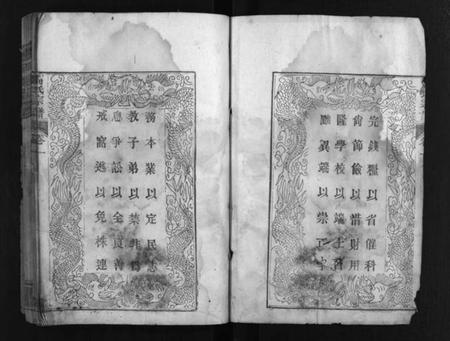 完錢糧以省催科
尚節儉以惜財用
隆學校以端士習
黜異端以崇正學
務本業以定民志
教子弟以禁非為
息爭訟以全良善
戒窩逃以免株連